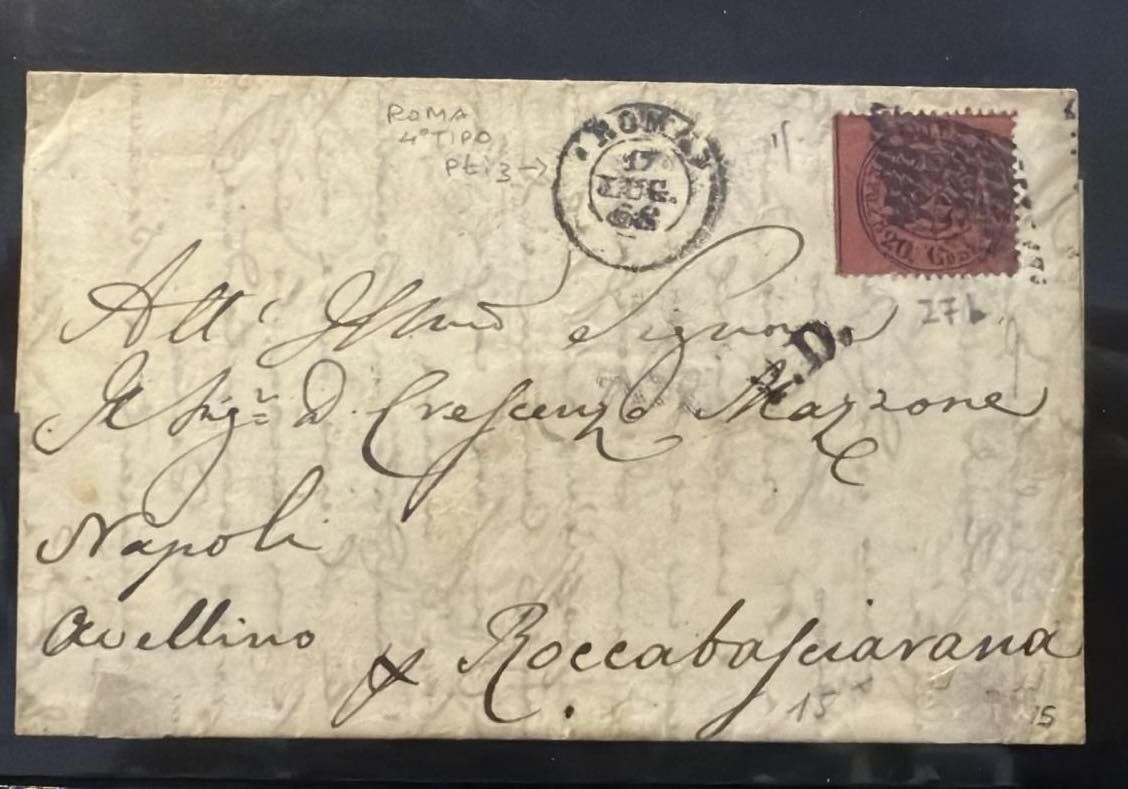 ROMA
4° TIPO
Pti 3 →
ROMA
17
LUG.
68
20 Cent
27b
.D.
All' Illmo Signore
Il Sigr D. Crescenzo Mazzone
Napoli
Avellino p Roccabasciarana
15
15